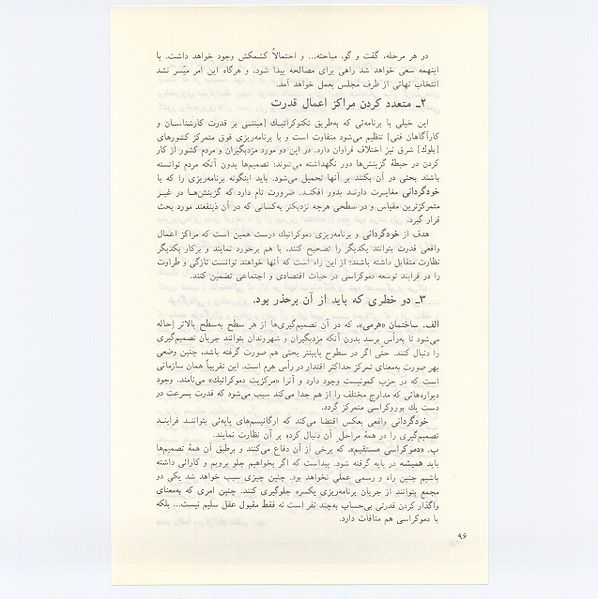 در هر مرحله، گفت و گو، مباحثه... و احتمالاً کشمکش وجود خواهد داشت. با
اینهمه سعی خواهد شد راهی برای مصالحه پیدا شود، و هرگاه این امر میّسر نشد
انتخاب نهائی از طرف مجلس بعمل خواهد آمد.
۲ـ متعدد کردن مراکز اعمال قدرت
این خیلی با برنامه‌ئی که به‌طریق تکنوکراتیك [مبتنی بر قدرت کارشناسان و
کارآگاهان فنی] تنظیم می‌شود متفاوت است و با برنامه‌ریزی فوق متمرکز کشورهای
[بلوك] شرق نیز اختلاف فراوان دارد. در این دو مورد مزدبگیران و مردم کشور از کار
کردن در حیطهٔ گزینش‌ها دور نگهداشته می‌شوند: تصمیم‌ها بدون آنکه مردم توانسته
باشند بحثی در آن بکنند بر آنها تحمیل می‌شود. باید اینگونه برنامه‌ریزی را که با
خودگردانی مغایرت دارند بدور افکند. ضرورت تام دارد که گزینش‌ها در غیر
متمرکزترین مقیاس و در سطحی هرچه نزدیکتر به‌کسانی که در آن ذینفعند مورد بحث
قرار گیرد.
هدف از خودگردانی و برنامه‌ریزی دموکراتیك درست همین است که مراکز اعمال
واقعی قدرت بتوانند یکدیگر را تصحیح کنند، با هم برخورد نمایند و برکار یکدیگر
نظارت متقابل داشته باشند: از این راه است که آنها خواهند توانست تازگی و طراوت
را در فرایند توسعه دموکراسی در حیات اقتصادی و اجتماعی تضمین کنند.
۳ـ دو خطری که باید از آن برحذر بود.
الف. ساختمان «هرمی»، که در آن تصمیم‌گیری‌ها از هر سطح به‌سطح بالاتر احاله
می‌شود تا به‌رأس برسد بدون آنکه مزدبگیران و شهروندان بتوانند جریان تصمیم‌گیری
را دنبال کنند. حتی اگر در سطوح پایینتر بحثی هم صورت گرفته باشد، چنین وضعی
بهر صورت به‌معنای تمرکز حداکثر اقتدار در رأس هرم است. این تقریباً همان سازمانی
است که در حزب کمونیست وجود دارد و آنرا «مرکزیت دموکراتیك» می‌نامند. وجود
دیواره‌هائی که مدارج مختلف را از هم جدا می‌کند سبب می‌شود که قدرت بسرعت در
دست یك بوروکراسی متمرکز گردد.
خودگردانی واقعی بعکس اقتضا می‌کند که ارگانیسم‌های پایه‌ئی بتوانند فرایند
تصمیم‌گیری را در همهٔ مراحل آن دنبال کرده بر آن نظارت نمایند.
ب. «دموکراسی مستقیم»، که برخی از آن دفاع می‌کنند و برطبق آن همهٔ تصمیم‌ها
باید همیشه در پایه گرفته شود. پیداست که اگر بخواهیم جلو برویم و کارائی داشته
باشیم چنین راه و رسمی عملی نخواهد بود. چنین چیزی سبب خواهد شد یکی دو
مجمع بتوانند از جریان برنامه‌ریزی یکسره جلوگیری کنند. چنین امری که به‌معنای
واگذار کردن قدرتی بی‌حساب به‌چند نفر است نه فقط مقبول عقل سلیم نیست... بلکه
با دموکراسی هم منافات دارد.
۹۶